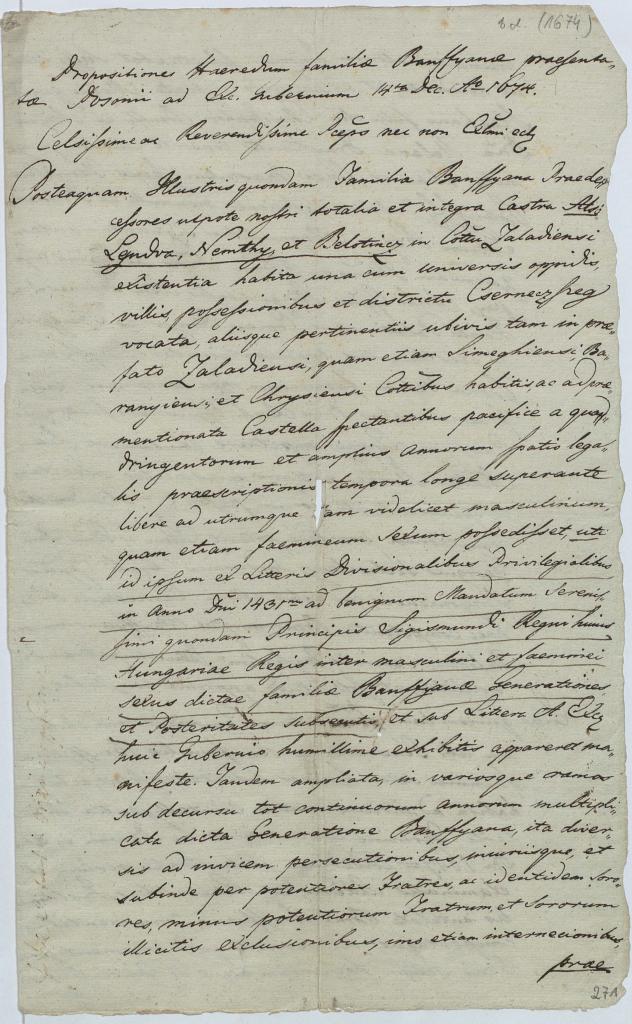 8 d. (1674)
Propositiones Haeredum familiæ Banffyanæ præsenta-
tæ Posonii ad Exc. Gubernium 14ta Dec. Ao 1674.
Celsissime ac Reverendissime Pceps nec non Exlmi etc
Posteaquam Illustris quondam Familia Banffyana Praede-
cessores utpote nostri totalia et integra Castra Alsó
Lyndva, Nemthy, et Belotincz in Cottu Zaladiensi
existentia habita una cum universis oppidis,
villis, possessionibus et districtu Csernecz seg
vocata, aliisque pertinentiis ubivis tam in præ-
fato Zaladiensi, quam etiam Simeghiensi, Ba-
ranyiensi, et Chrysiensi Cottibus habitis ac ad præ-
mentionata Castella spectantibus pacifice a qua-
dringentorum et amplius annorum spatio lega-
lis praescriptionis tempora longe superante
libere ad utrumque am videlicet masculinum,
quam etiam faemineum sexum possedisset, uti
id ipsum ex Litteris Divisionalibus Privilegialibus
in Anno Dni 1431mo ad benignum Mandatum Serenis-
simi quondam Principis Sigismundi Regni hujus
Hungariae Regis inter masculini et faeminei
sexus dictae familiæ Banffyanæ Generationes
et Posteritates subsecutis, et sub Littera A. Excz
huic Gubernio humillime exhibitis appareret ma-
nifeste. Tandem ampliata, in variosque ramos
sub decursu tot continuorum annorum multipli-
cata dicta Generatione Banffyana, ita diver-
sis ad invicem persecutionibus, iniuriisque, et
subinde per potentiores Fratres, ac identidem Soro-
res, minus potentiorum Fratrum, et Sororum
illicitis exclusionibus, imo etiam internecionibus,
prae
271